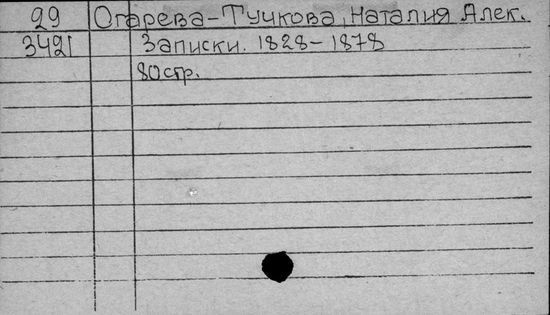 29 Огарева-Тучкова, Наталия Алек.
3421 Записки. 1828-1878
80стр.